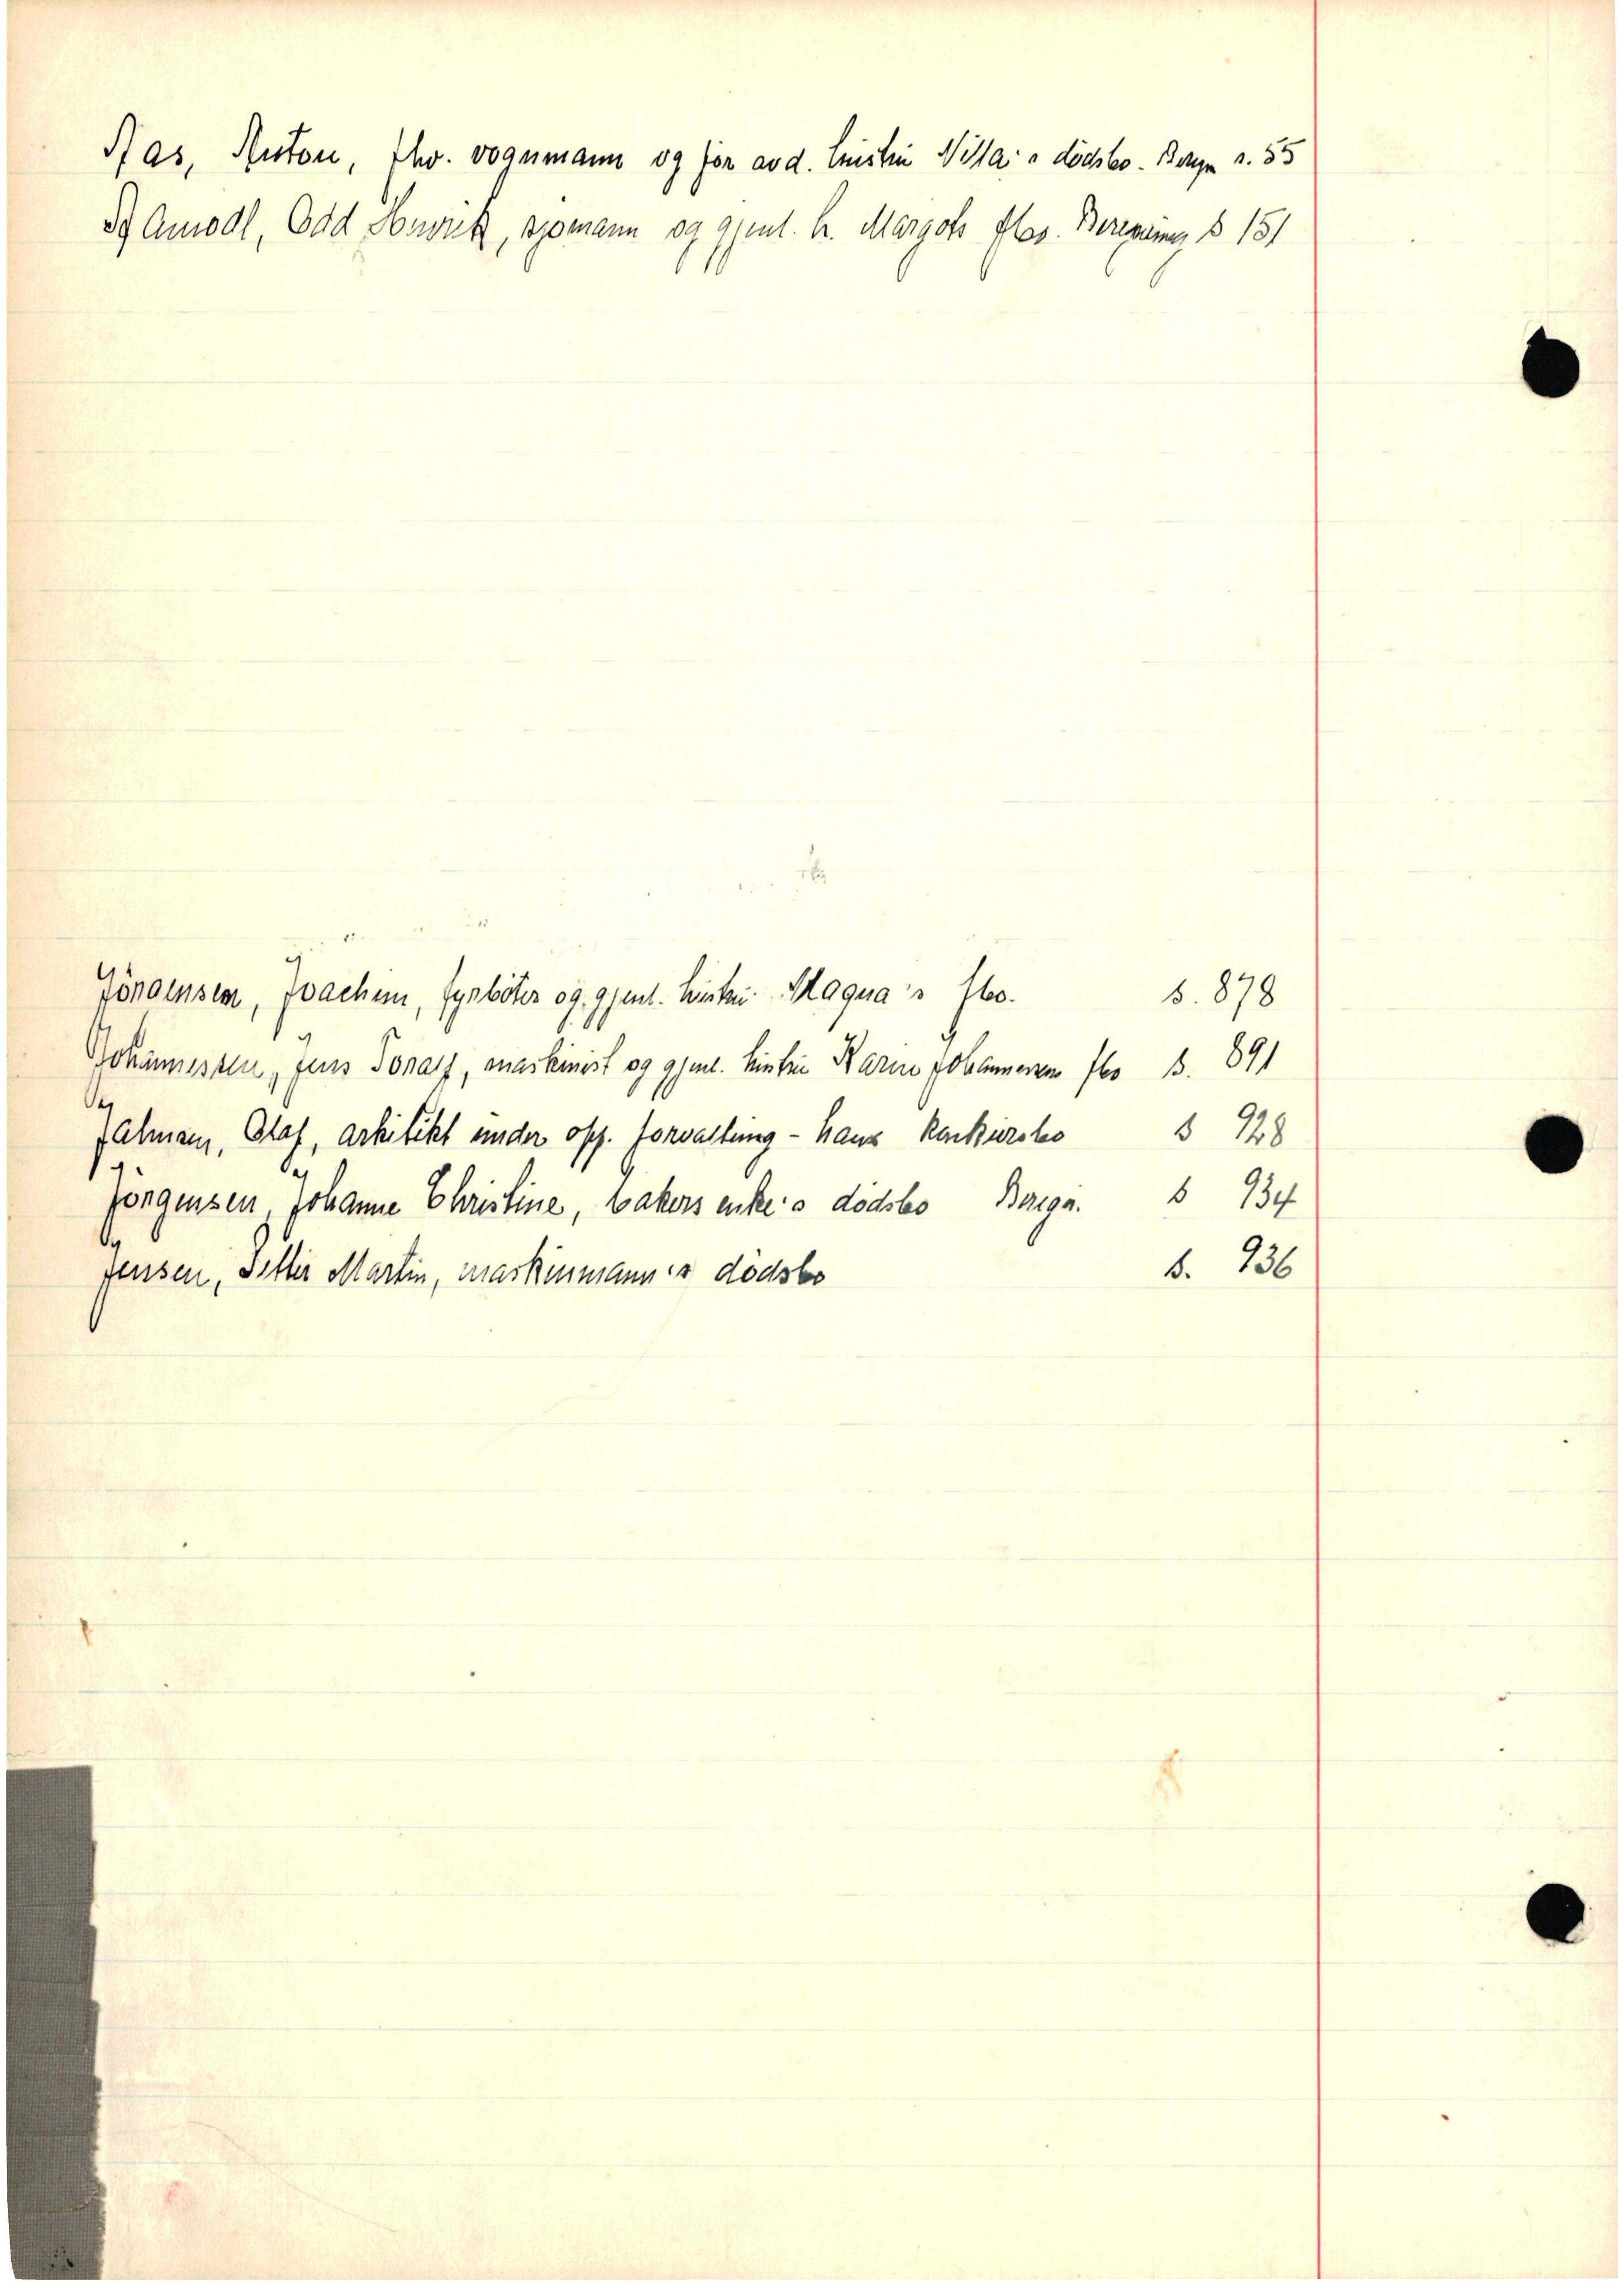 Aas, Anton, fhv. vognmann og før avd. hustru Nilla's dødsbo. Beregn s. 55
Amodl, Odd Henrik, sjømann og gjenl. h. Margots fbo. Beregning s 151
Jörgensen, Joachim, fyrböter og gjenl. hustru Magna's fbo. s. 878
Johannessen, Jens Toralf, maskinist og gjenl. hustru Karin Johannessens fbo s. 891
Jalmar, Olaf, arkitekt under off. forvaltning - hans konkursbo s 928
Jörgensen, Johanne Christine, bakers enke's dödsbo Beregn. s 934
Jensen, Petter Martin, maskinmann's dödsbo s. 936